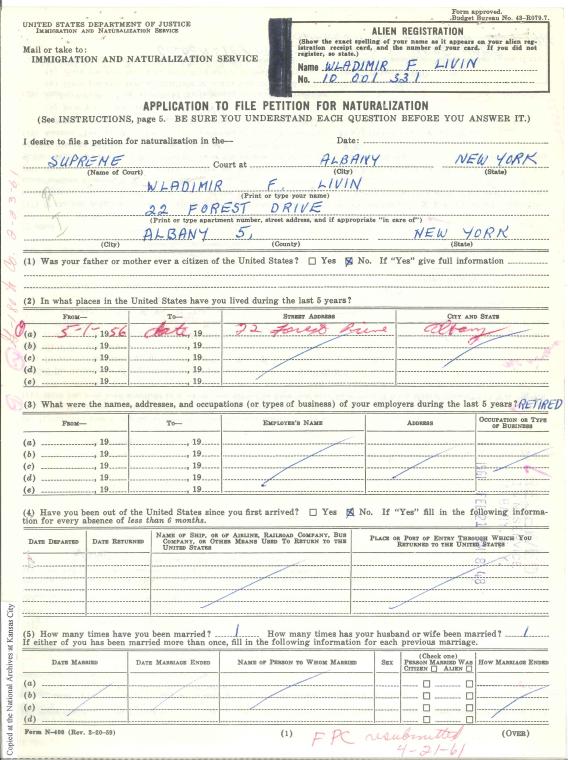 Form approved.
Budget Bureau No. 43-R079.7.
UNITED STATES DEPARTMENT OF JUSTICE
IMMIGRATION AND NATURALIZATION SERVICE
Mail or take to:
IMMIGRATION AND NATURALIZATION SERVICE
ALIEN REGISTRATION
(Show the exact spelling of your name as it appears on your alien reg-
istration receipt card, and the number of your card. If you did not
register, so state.)
Name WLADIMIR F LIVIN
No. 10 001 331
APPLICATION TO FILE PETITION FOR NATURALIZATION
(See INSTRUCTIONS, page 5. BE SURE YOU UNDERSTAND EACH QUESTION BEFORE YOU ANSWER IT.)
I desire to file a petition for naturalization in the— Date:
SUPREME Court at ALBANY NEW YORK
(Name of Court) (City) (State)
WLADIMIR F. LIVIN
(Print or type your name)
22 FOREST DRIVE
(Print or type apartment number, street address, and if appropriate "in care of")
ALBANY 5, NEW YORK
(City) (County) (State)
(1) Was your father or mother ever a citizen of the United States? Yes No. If "Yes" give full information
(2) In what places in the United States have you lived during the last 5 years?
FROM— TO— STREET ADDRESS CITY AND STATE
(a) 5-1-, 1956 date, 19 22 Forest Drive Albany
(b) , 19 , 19
(c) , 19 , 19
(d) , 19 , 19
(e) , 19 , 19
(3) What were the names, addresses, and occupations (or types of business) of your employers during the last 5 years? RETIRED
FROM— TO— EMPLOYER'S NAME ADDRESS OCCUPATION OR TYPE OF BUSINESS
(a) , 19 , 19
(b) , 19 , 19
(c) , 19 , 19
(d) , 19 , 19
(e) , 19 , 19
(4) Have you been out of the United States since you first arrived? Yes No. If "Yes" fill in the following informa-
tion for every absence of less than 6 months.
DATE DEPARTED DATE RETURNED NAME OF SHIP, OR OF AIRLINE, RAILROAD COMPANY, BUS COMPANY, OR OTHER MEANS USED TO RETURN TO THE UNITED STATES PLACE OR PORT OF ENTRY THROUGH WHICH YOU RETURNED TO THE UNITED STATES
(5) How many times have you been married? 1 How many times has your husband or wife been married? 1
If either of you has been married more than once, fill in the following information for each previous marriage.
DATE MARRIED DATE MARRIAGE ENDED NAME OF PERSON TO WHOM MARRIED SEX (Check one) PERSON MARRIED WAS CITIZEN ALIEN HOW MARRIAGE ENDED
(a)
(b)
(c)
(d)
Form N-400 (Rev. 2-20-59) (1) (OVER)
FPC resubmitted
4-21-61
Copied at the National Archives at Kansas City